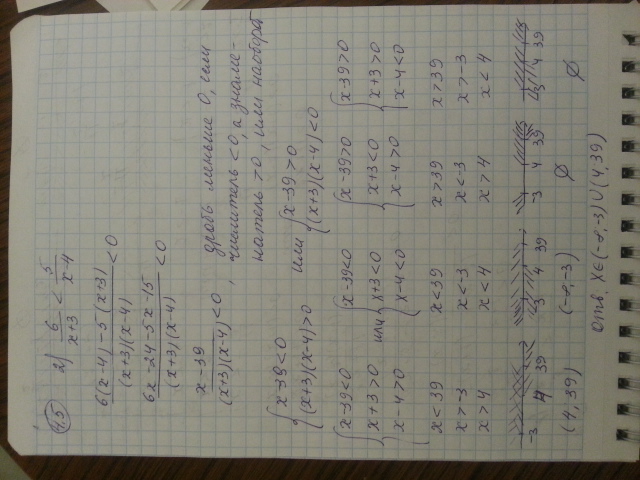 4.5 2) 6/(x+3) < 5/(x-4)
(6(x-4)-5(x+3))/((x+3)(x-4)) < 0
(6x-24-5x-15)/((x+3)(x-4)) < 0
(x-39)/((x+3)(x-4)) < 0, дробь меньше 0, если
числитель < 0, а знаме-
натель > 0, или наоборот
{x-39<0 (x+3)(x-4)>0 или {x-39>0 (x+3)(x-4)<0
{x-39<0 {x-39<0 {x-39>0 {x-39>0
{x+3>0 или {x+3<0 {x+3<0 {x+3>0
{x-4>0 {x-4<0 {x-4>0 {x-4<0
x<39 x<39 x>39 x>39
x>-3 x<-3 x<-3 x>-3
x>4 x<4 x>4 x<4
-3 4 39 -3 4 39 -3 4 39 -3 4 39
(4,39) (-∞,-3) ∅ ∅
Отв. x∈(-∞,-3)∪(4,39)